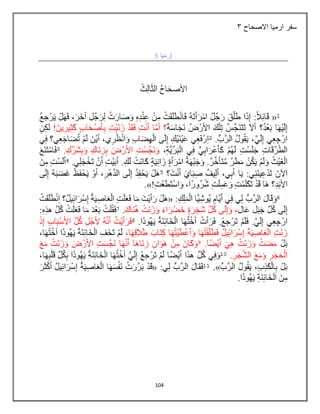 سفر ارميا الاصحاح ٣
إرميا 3
الأصحَاحُ الثَّالِثُ
1«قَائِلاً: إِذَا طَلَّقَ رَجُلٌ امْرَأَتَهُ فَانْطَلَقَتْ مِنْ عِنْدِهِ وَصَارَتْ لِرَجُل آخَرَ، فَهَلْ يَرْجِعُ
إِلَيْهَا بَعْدُ؟ أَلاَ تَتَنَجَّسُ تِلْكَ الأَرْضُ نَجَاسَةً؟ أَمَّا أَنْتِ فَقَدْ زَنَيْتِ بِأَصْحَابٍ كَثِيرِينَ! لكِنِ
ارْجِعِي إِلَيَّ، يَقُولُ الرَّبُّ. 2اِرْفَعِي عَيْنَيْكِ إِلَى الْهِضَابِ وَانْظُرِي، أَيْنَ لَمْ تُضَاجَعِي؟ فِي
الطُّرُقَاتِ جَلَسْتِ لَهُمْ كَأَعْرَابِيٍّ فِي الْبَرِّيَّةِ، وَنَجَّسْتِ الأَرْضَ بِزِنَاكِ وَبِشَرِّكِ. 3فَامْتَنَعَ
الْغَيْثُ وَلَمْ يَكُنْ مَطَرٌ مُتَأَخِّرٌ. وَجَبْهَةُ امْرَأَةٍ زَانِيَةٍ كَانَتْ لَكِ. أَبَيْتِ أَنْ تَخْجَلِي. 4أَلَسْتِ مِنَ
الآنَ تَدْعِينَنِي: يَا أَبِي، أَلِيفُ صِبَايَ أَنْتَ؟ 5هَلْ يَحْقِدُ إِلَى الدَّهْرِ، أَوْ يَحْفَظُ غَضَبَهُ إِلَى
الأَبَدِ؟ هَا قَدْ تَكَلَّمْتِ وَعَمِلْتِ شُرُورًا، وَاسْتَطَعْتِ!».
6وَقَالَ الرَّبُّ لِي فِي أَيَّامِ يُوشِيَّا الْمَلِكِ: «هَلْ رَأَيْتَ مَا فَعَلَتِ الْعَاصِيَةُ إِسْرَائِيلُ؟ اِنْطَلَقَتْ
إِلَى كُلِّ جَبَل عَال، وَإِلَى كُلِّ شَجَرَةٍ خَضْرَاءَ وَزَنَتْ هُنَاكَ. 7فَقُلْتُ بَعْدَ مَا فَعَلَتْ كُلَّ هذِهِ:
ارْجِعِي إِلَيَّ. فَلَمْ تَرْجعْ. فَرَأَتْ أُخْتُهَا الْخَائِنَةُ يَهُوذَا. 8فَرَأَيْتُ أَنَّهُ لأَجْلِ كُلِّ الأَسْبَابِ إِذْ
زَنَتِ الْعَاصِيَةُ إِسْرَائِيلُ فَطَلَّقْتُهَا وَأَعْطَيْتُهَا كِتَابَ طَلاَقِهَا، لَمْ تَخَفِ الْخَائِنَةُ يَهُوذَا أُخْتُهَا،
بَلْ مَضَتْ وَزَنَتْ هِيَ أَيْضًا. 9وَكَانَ مِنْ هَوَانِ زِنَاهَا أَنَّهَا نَجَّسَتِ الأَرْضَ وَزَنَتْ مَعَ
الْحَجَرِ وَمَعَ الشَّجَرِ. 10وَفِي كُلِّ هذَا أَيْضًا لَمْ تَرْجعْ إِلَيَّ أُخْتُهَا الْخَائِنَةُ يَهُوذَا بِكُلِّ قَلْبِهَا،
بَلْ بِالْكَذِبِ، يَقُولُ الرَّبُّ». 11فَقَالَ الرَّبُّ لِي: «قَدْ بَرَّرَتْ نَفْسَهَا الْعَاصِيَةُ إِسْرَائِيلُ أَكْثَرَ
مِنَ الْخَائِنَةِ يَهُوذَا.
104